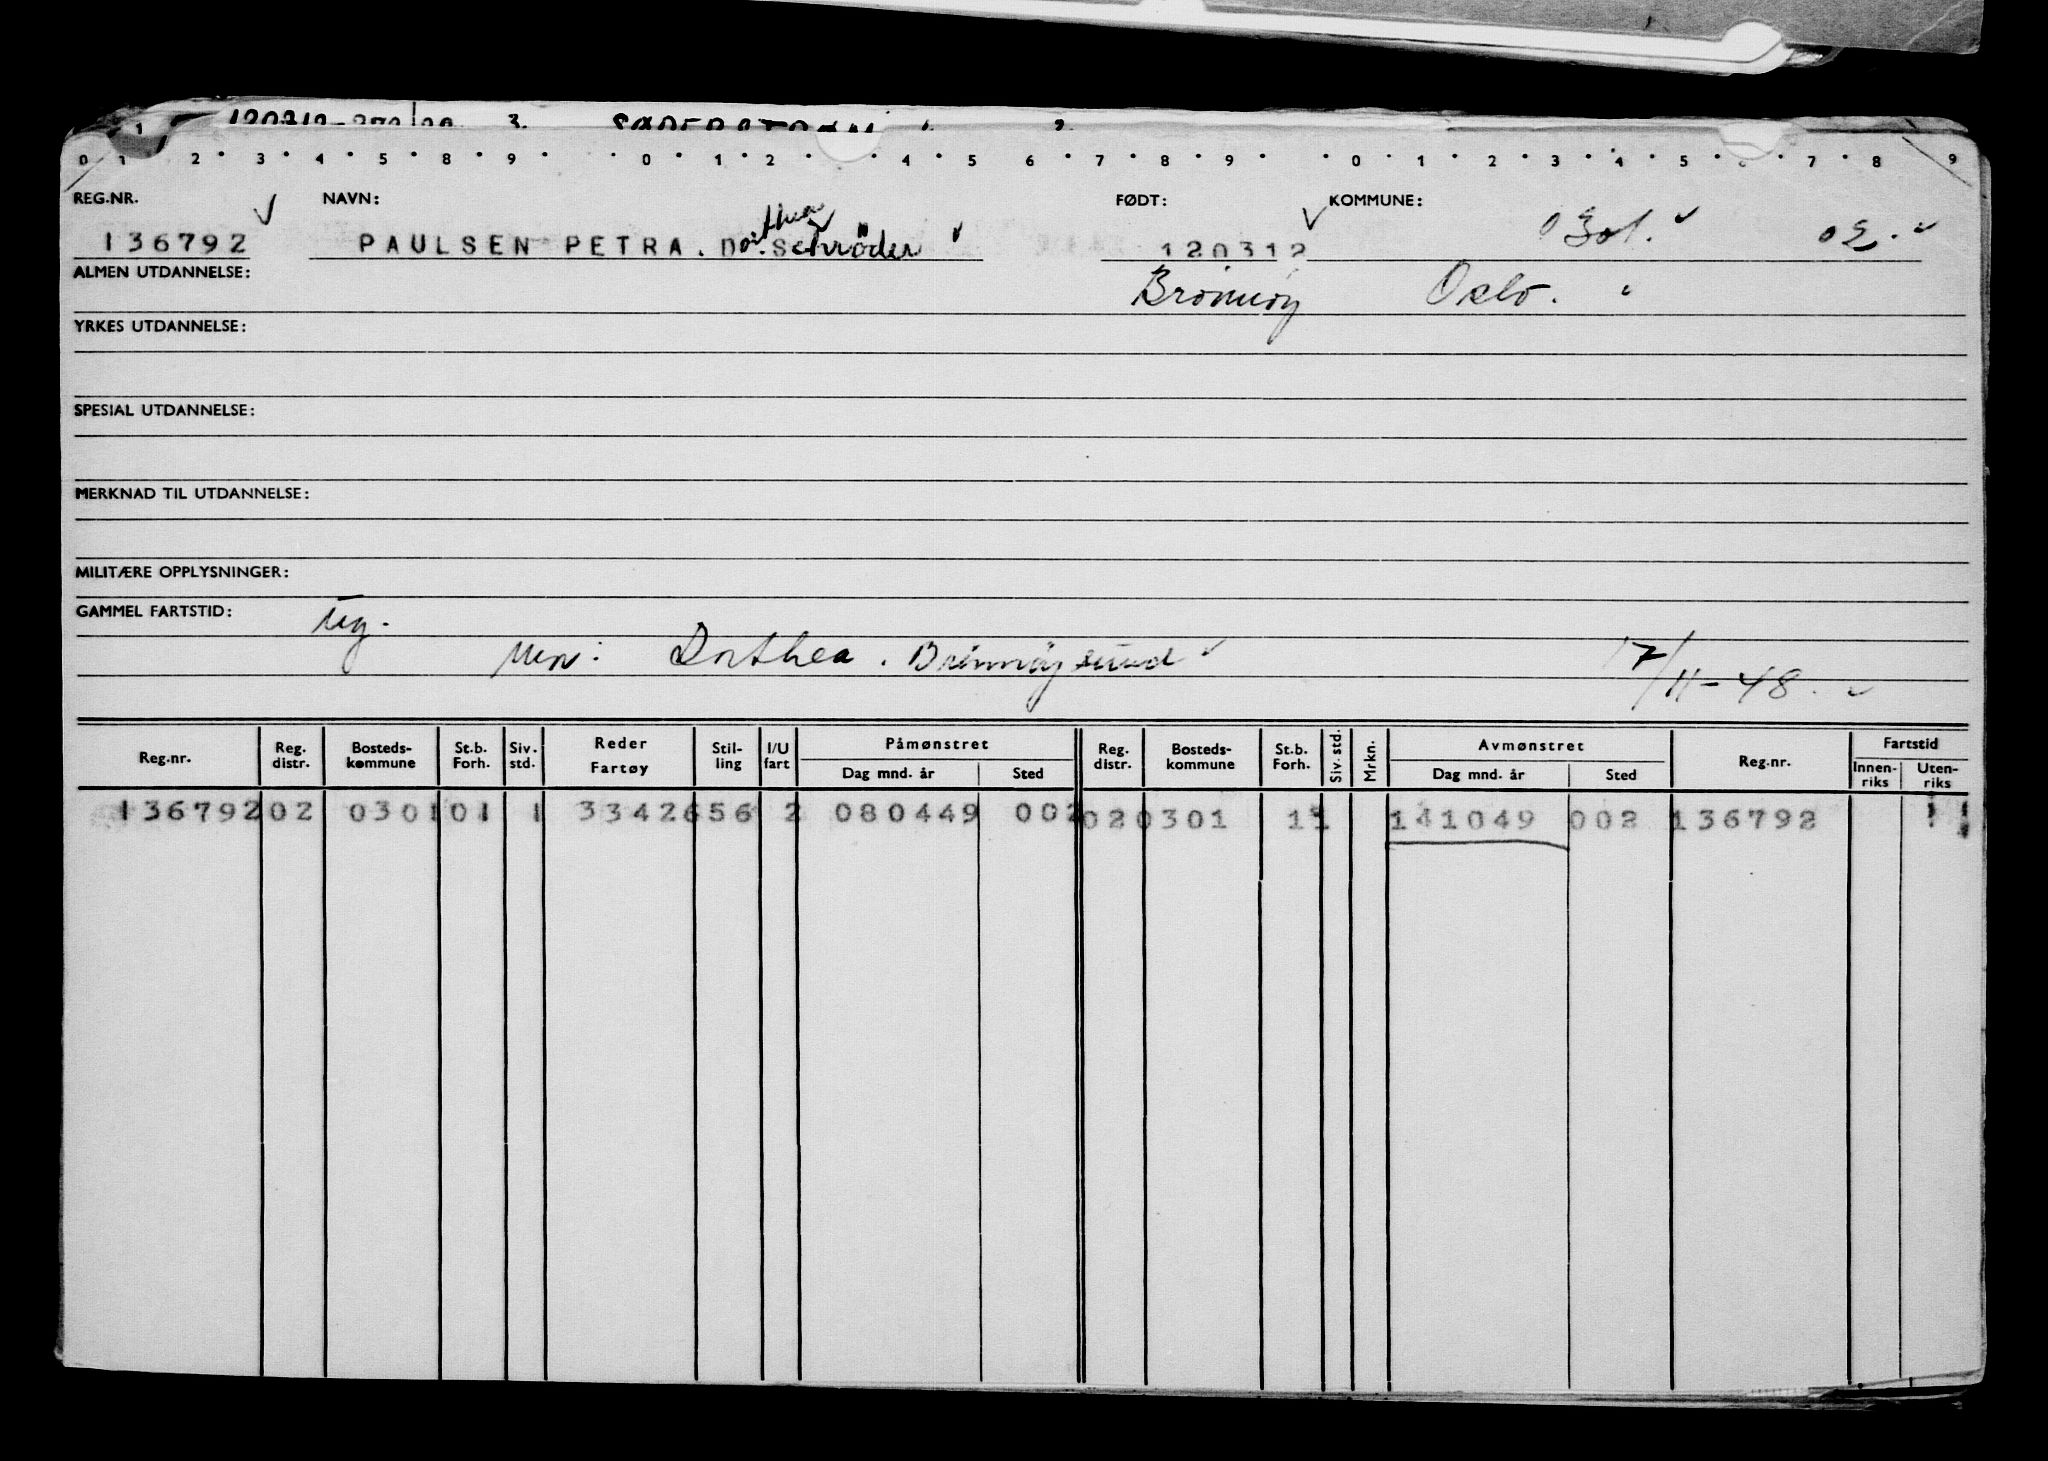 0 1 2 3 4 5 8 9 0 1 2 4 5 6 7 8 9 0 1 2 3 4 5 7 8 9
REG.NR. NAVN: FØDT: KOMMUNE:
136792 PAULSEN PETRA. Dorthea Schrøder 120312 0301. 02.
ALMEN UTDANNELSE: Brønnøy Oslo.
YRKES UTDANNELSE:
SPESIAL UTDANNELSE:
MERKNAD TIL UTDANNELSE:
MILITÆRE OPPLYSNINGER:
GAMMEL FARTSTID:
Mor: Dorthea. Brønnøysund 17/11-48.
Reg.nr. Reg. distr. Bosteds-kommune St.b. Forh. Siv. std. Reder Fartøy Stil-ling I/U fart Påmønstret Dag mnd. år Sted Reg. distr. Bosteds-kommune St.b. Forh. Siv. std. Mrkn. Avmønstret Dag mnd. år Sted Reg.nr. Fartstid Innen-riks Uten-riks
136792 02 0301 01 1 3342656 2 080449 002 02 0301 11 141049 002 136792